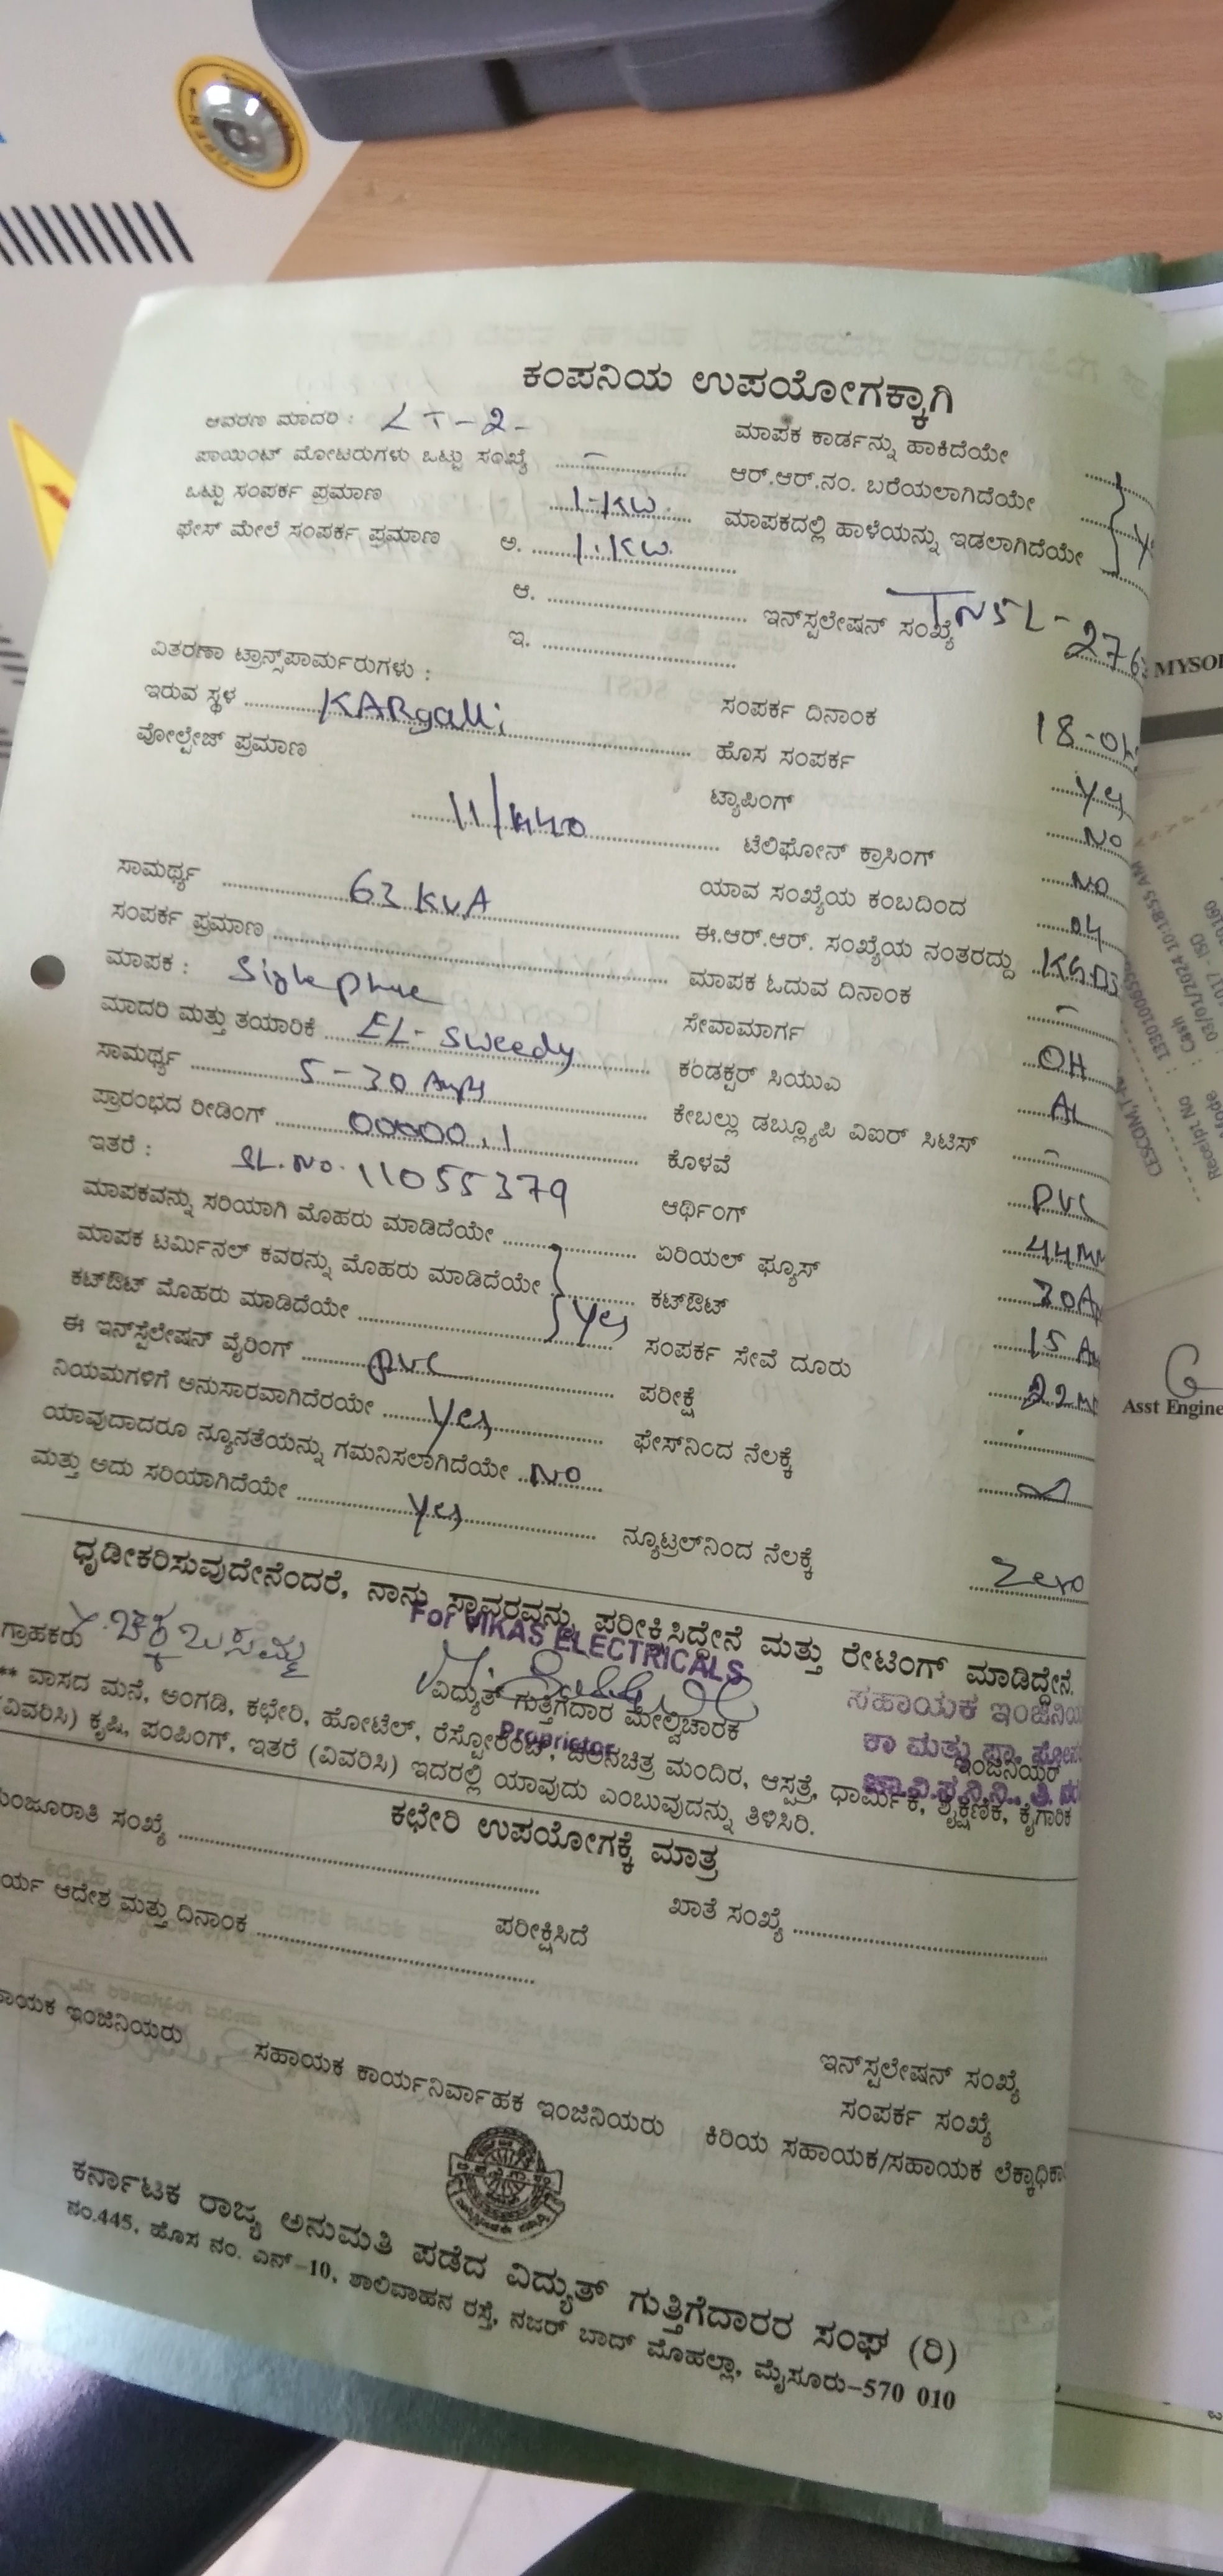 ಕಂಪನಿಯ ಉಪಯೋಗಕ್ಕಾಗಿ
ಆವರಣ ಮಾದರಿ : LT-2-
ಮಾಪಕ ಕಾರ್ಡನ್ನು ಹಾಕಿದೆಯೇ
ಪಾಯಿಂಟ್ ಮೋಟರುಗಳು ಒಟ್ಟು ಸಂಖ್ಯೆ -
ಆರ್.ಆರ್.ನಂ. ಬರೆಯಲಾಗಿದೆಯೇ
ಒಟ್ಟು ಸಂಪರ್ಕ ಪ್ರಮಾಣ 1-KW
ಮಾಪಕದಲ್ಲಿ ಹಾಳೆಯನ್ನು ಇಡಲಾಗಿದೆಯೇ
ಫೇಸ್ ಮೇಲೆ ಸಂಪರ್ಕ ಪ್ರಮಾಣ ಅ. 1.KW
ಆ.
ಇನ್‌ಸ್ಪಲೇಷನ್ ಸಂಖ್ಯೆ TNSL-276
ಇ.
ವಿತರಣಾ ಟ್ರಾನ್ಸ್‌ಪಾರ್ಮರುಗಳು :
ಸಂಪರ್ಕ ದಿನಾಂಕ 18-04
ಇರುವ ಸ್ಥಳ KARgalli
ಹೊಸ ಸಂಪರ್ಕ Yes
ವೋಲ್ಟೇಜ್ ಪ್ರಮಾಣ
ಟ್ಯಾಪಿಂಗ್ No
11/440
ಟೆಲಿಫೋನ್ ಕ್ರಾಸಿಂಗ್ NO
ಸಾಮರ್ಥ್ಯ 63 KVA
ಯಾವ ಸಂಖ್ಯೆಯ ಕಂಬದಿಂದ 04
ಸಂಪರ್ಕ ಪ್ರಮಾಣ
ಈ.ಆರ್.ಆರ್. ಸಂಖ್ಯೆಯ ನಂತರದ್ದು
ಮಾಪಕ : Single phase
ಮಾಪಕ ಓದುವ ದಿನಾಂಕ -
ಮಾದರಿ ಮತ್ತು ತಯಾರಿಕೆ EL-Sweedy
ಸೇವಾಮಾರ್ಗ OH
ಸಾಮರ್ಥ್ಯ 5-30 Amps
ಕಂಡಕ್ಟರ್ ಸಿಯುಎ AL
ಪ್ರಾರಂಭದ ರೀಡಿಂಗ್ 00000.1
ಕೇಬಲ್ಲು ಡಬ್ಲ್ಯೂಪಿ ವಿಐರ್ ಸಿಟಿಸ್ -
ಇತರೆ : SL.No. 11055379
ಕೊಳವೆ PVC
ಮಾಪಕವನ್ನು ಸರಿಯಾಗಿ ಮೊಹರು ಮಾಡಿದೆಯೇ
ಆರ್ಥಿಂಗ್
ಮಾಪಕ ಟರ್ಮಿನಲ್ ಕವರನ್ನು ಮೊಹರು ಮಾಡಿದೆಯೇ
ಏರಿಯಲ್ ಫ್ಯೂಸ್
ಕಟ್‌ಔಟ್ ಮೊಹರು ಮಾಡಿದೆಯೇ Yes
ಕಟ್‌ಔಟ್
ಈ ಇನ್‌ಸ್ಪೆಲೇಷನ್ ವೈರಿಂಗ್ PVC
ಸಂಪರ್ಕ ಸೇವೆ ದೂರು
ನಿಯಮಗಳಿಗೆ ಅನುಸಾರವಾಗಿದೆರಯೇ Yes
ಪರೀಕ್ಷೆ
ಯಾವುದಾದರೂ ನ್ಯೂನತೆಯನ್ನು ಗಮನಿಸಲಾಗಿದೆಯೇ NO
ಫೇಸ್‌ನಿಂದ ನೆಲಕ್ಕೆ
ಮತ್ತು ಅದು ಸರಿಯಾಗಿದೆಯೇ Yes
ನ್ಯೂಟ್ರಲ್‌ನಿಂದ ನೆಲಕ್ಕೆ Zero
ಧೃಡೀಕರಿಸುವುದೇನೆಂದರೆ, ನಾನು ಸ್ಥಾವರವನ್ನು ಪರೀಕ್ಷಿಸಿದ್ದೇನೆ ಮತ್ತು ರೇಟಿಂಗ್ ಮಾಡಿದ್ದೇನೆ.
For VIKAS ELECTRICALS
ಗ್ರಾಹಕರು
ವಿದ್ಯುತ್ ಗುತ್ತಿಗೆದಾರ ಮೇಲ್ವಿಚಾರಕ
Proprietor
ಸಹಾಯಕ ಇಂಜಿನಿಯ
ಇಂಜಿನಿಯರ್
** ವಾಸದ ಮನೆ, ಅಂಗಡಿ, ಕಛೇರಿ, ಹೋಟೆಲ್, ರೆಸ್ಟೋರೆಂಟ್, ಚಲನಚಿತ್ರ ಮಂದಿರ, ಆಸ್ಪತ್ರೆ, ಧಾರ್ಮಿಕ, ಶೈಕ್ಷಣಿಕ, ಕೈಗಾರಿಕ
(ವಿವರಿಸಿ) ಕೃಷಿ, ಪಂಪಿಂಗ್, ಇತರೆ (ವಿವರಿಸಿ) ಇದರಲ್ಲಿ ಯಾವುದು ಎಂಬುವುದನ್ನು ತಿಳಿಸಿರಿ.
ಕಛೇರಿ ಉಪಯೋಗಕ್ಕೆ ಮಾತ್ರ
ಮಂಜೂರಾತಿ ಸಂಖ್ಯೆ
ಖಾತೆ ಸಂಖ್ಯೆ
ರ್ಯ ಆದೇಶ ಮತ್ತು ದಿನಾಂಕ
ಪರೀಕ್ಷಿಸಿದೆ
ಇನ್‌ಸ್ಪಲೇಷನ್ ಸಂಖ್ಯೆ
ಸಂಪರ್ಕ ಸಂಖ್ಯೆ
ಾಯಕ ಇಂಜಿನಿಯರು
ಸಹಾಯಕ ಕಾರ್ಯನಿರ್ವಾಹಕ ಇಂಜಿನಿಯರು
ಕಿರಿಯ ಸಹಾಯಕ/ಸಹಾಯಕ ಲೆಕ್ಕಾಧಿಕಾ
ಕರ್ನಾಟಕ ರಾಜ್ಯ ಅನುಮತಿ ಪಡೆದ ವಿದ್ಯುತ್ ಗುತ್ತಿಗೆದಾರರ ಸಂಘ (ರಿ)
ನಂ.445, ಹೊಸ ನಂ. ಎನ್-10, ಶಾಲಿವಾಹನ ರಸ್ತೆ, ನಜರ್ ಬಾದ್ ಮೊಹಲ್ಲಾ, ಮೈಸೂರು-570 010
MYSO
Asst Engine